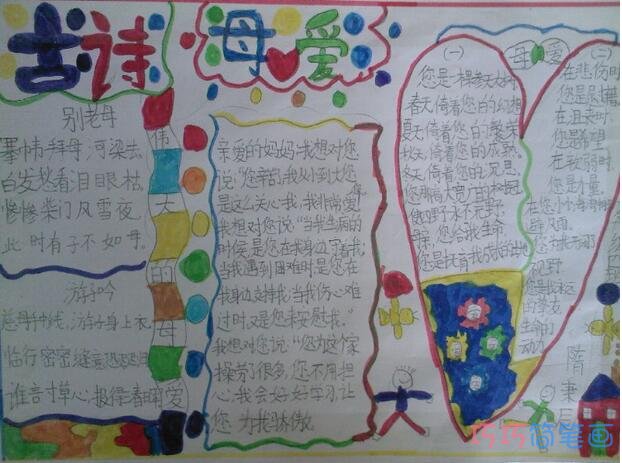 古诗
母爱
别老母
搴帏拜母河染去
白发愁看泪眼枯
惨惨柴门风雪夜
此时有子不如母。
游子吟
慈母手中线,游子身上衣
临行密密缝意恐迟迟归
谁言寸草心报得春晖
伟大的母爱
亲爱的妈妈,我想对您
说:“您辛苦,我从小到大您
是这么关心我,我非常爱
我想对您说:“当我生病的
时候,是您在我身边守着我,
当我遇到困难时是您在
我身边支持我,当我伤心难
过时,又是您来安慰我。”
我想对您说:“您为这个家
操劳很多,您不用担
心,我会好好学习,让
您为我骄傲。
母爱
(一)
您是一棵大树
春天倚着您的幻想
夏天倚着您的繁荣
秋天倚着您的成熟
冬天倚着您的沉思
您那高大宽广的
使四野水不荒野
母亲,您给我生命
您是抚育我成长的土地
(二)
在悲伤时
您是慰藉
在沮丧时
您是希望
在软弱时
您是力量
在您小小的
避风雨
您为我开阔
视野
您是我
的挚友
生命的
动力
隋秉辰
巧巧简笔画